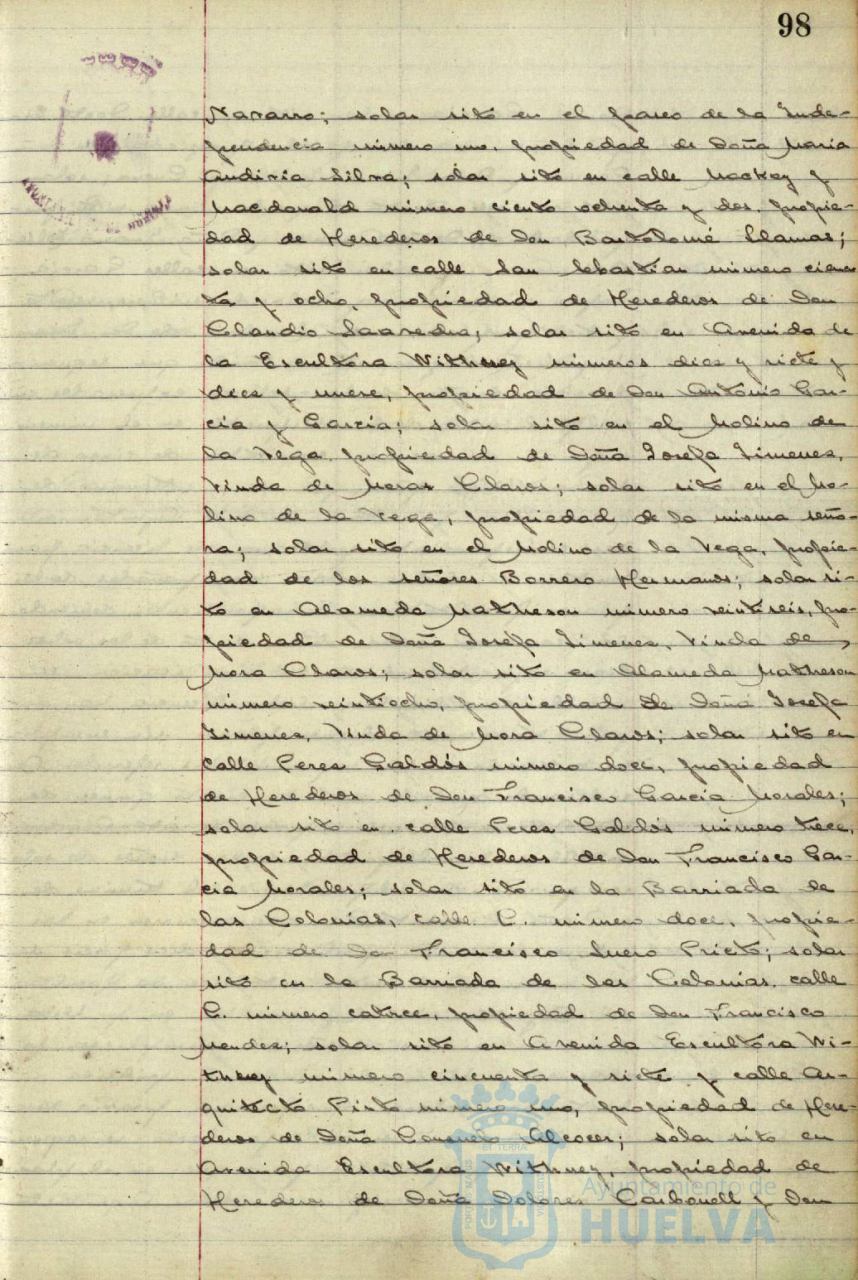 98
Navarro; solar sito en el paseo de la Inde-
pendencia número uno, propiedad de Doña María
Andivia Silva; solar sito en calle Mackay y
Macdonald número ciento ochenta y dos, propie-
dad de Herederos de Don Bartolomé Llamas;
solar sito en calle San Sebastian número cicuen
ta y ocho, propiedad de Herederos de Don
Claudio Saavedra; solar sito en Avenida de
la Escultora Withney números diez y siete y
diez y nueve, propiedad de Don Antonio Gar-
cia y García; solar sito en el Molino de
la Vega, propiedad de Doña Josefa Jimenez,
Viuda de Moras Claros; solar sito en el Mo-
lino de la Vega, propiedad de la misma seño-
ra; solar sito en el Molino de la Vega, propie-
dad de los señores Borrero Hermanos; solar si-
to en Alameda Matheson número veintiseis, pro-
piedad de Doña Josefa Jimenez, Viuda de
Mora Claros; solar sito en Alameda Matheson
número veintiocho, propiedad de Doña Josefa
Jimenez, Viuda de Mora Claros; solar sito en
calle Perez Galdós número doce, propiedad
de Herederos de Don Francisco García Morales;
solar sito en calle Perez Galdós número trece,
propiedad de Herederos de Don Francisco Gar-
cia Morales; solar sito en la Barriada de
las Colonias, calle C. número doce, propie-
dad de Don Francisco Suero Prieto; solar
sito en la Barriada de las Colonias, calle
C. número catorce, propiedad de Don Francisco
Mendez; solar sito en Avenida Escultora Wi-
thney número cincuenta y siete y calle Ar-
quitecto Pinto número uno, propiedad de Here-
deros de Doña Consuelo Alcocer; solar sito en
Avenida Escultora Withney, propiedad de
Herederos de Doña Dolores Carbonell y Don
Ayuntamiento de
HUELVA